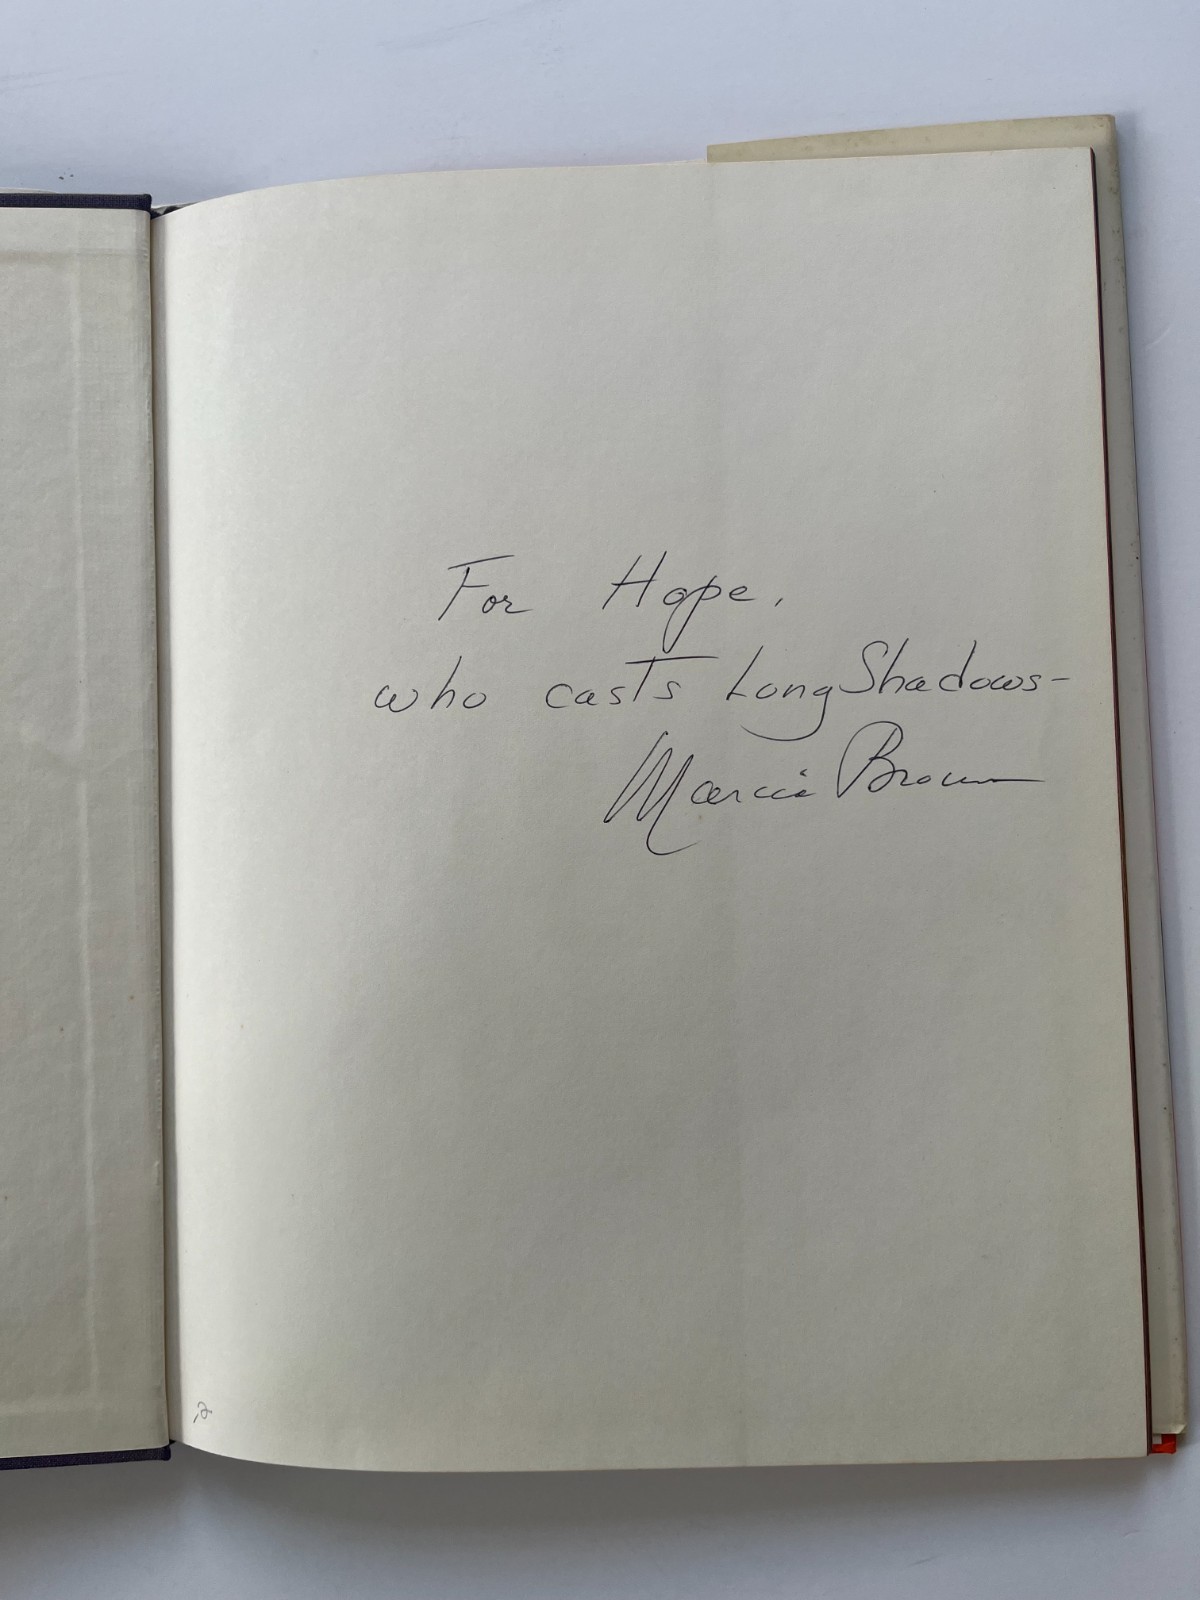 For Hope,
who casts Long Shadows-
Marcia Brown